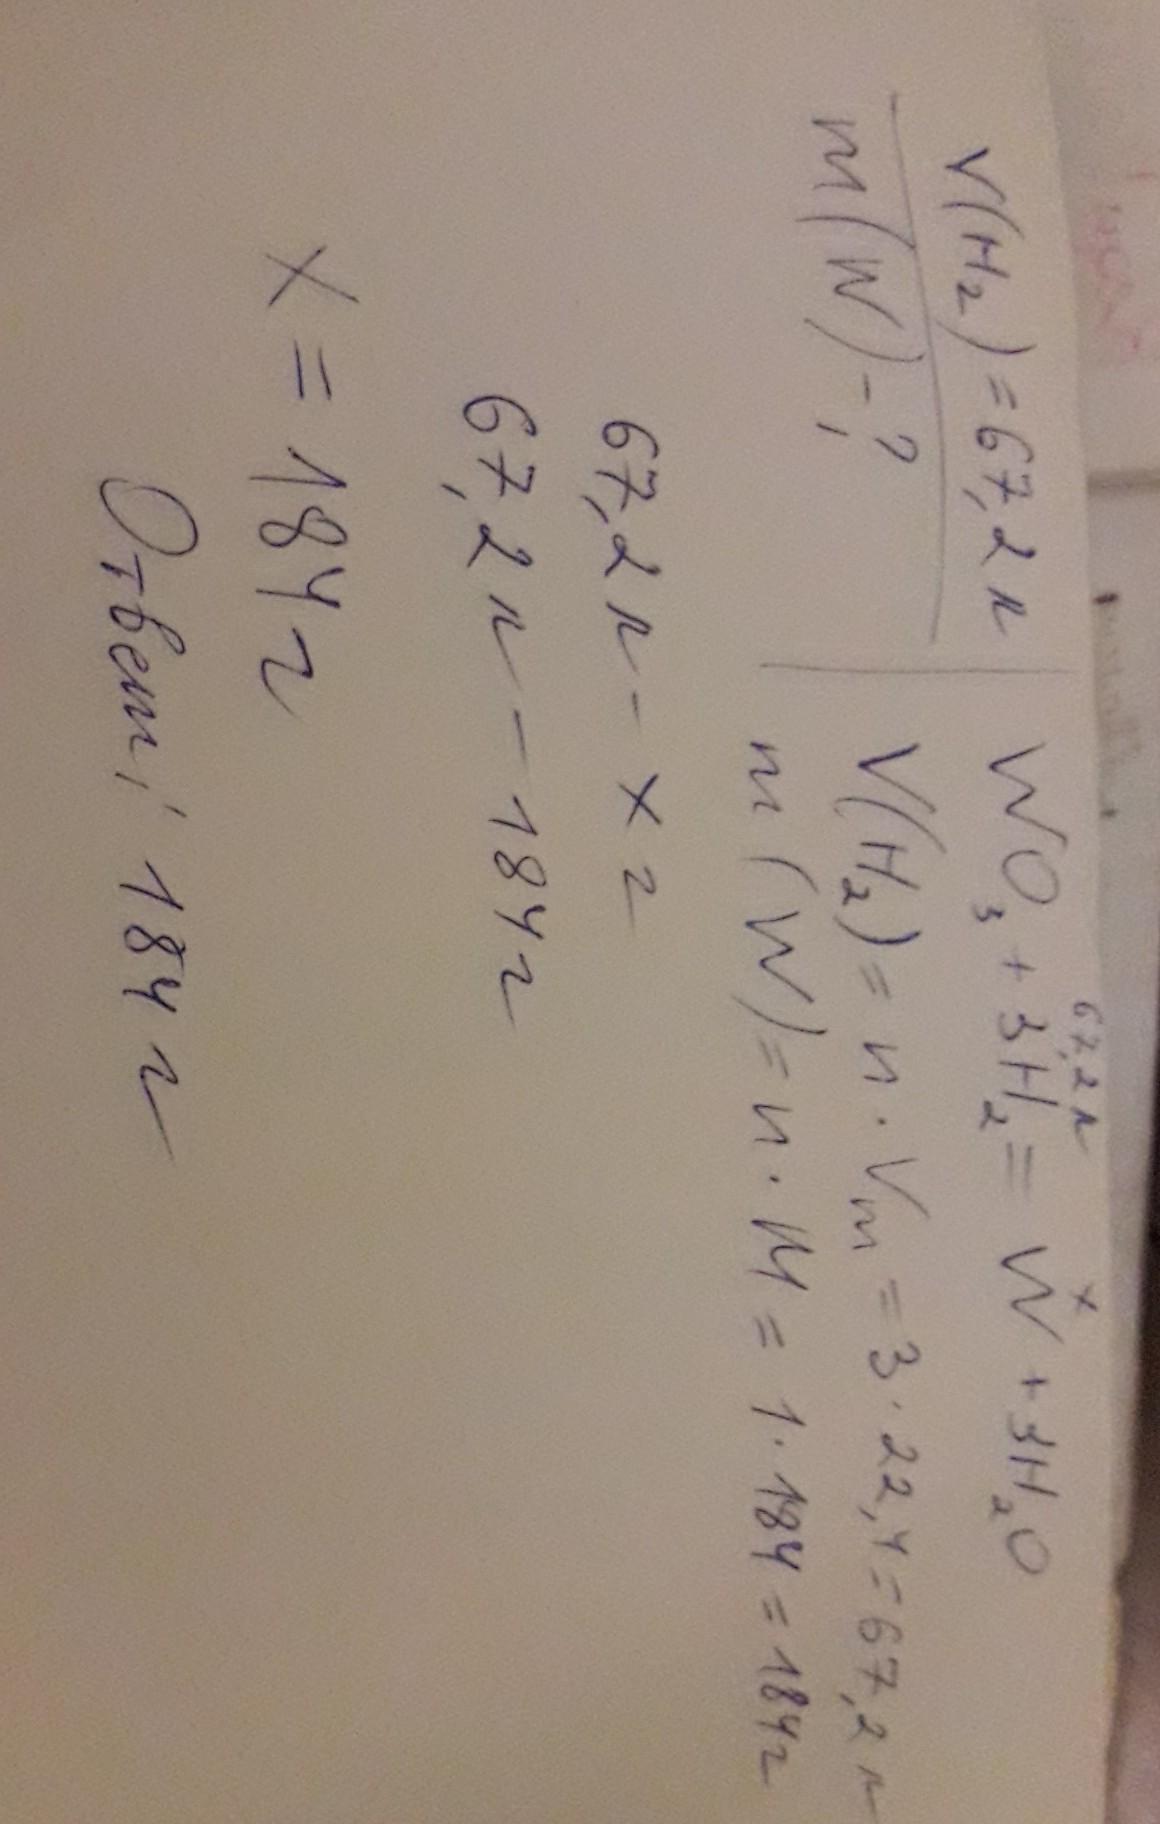 V(H₂) = 67,2 л
m(W) - ?
67,2 л    x
WO₃ + 3H₂ = W + 3H₂O
V(H₂) = n · Vm = 3 · 22,4 = 67,2 л
m(W) = n · M = 1 · 184 = 184 г
67,2 л - x г
67,2 л - 184 г
x = 184 г
Ответ: 184 г